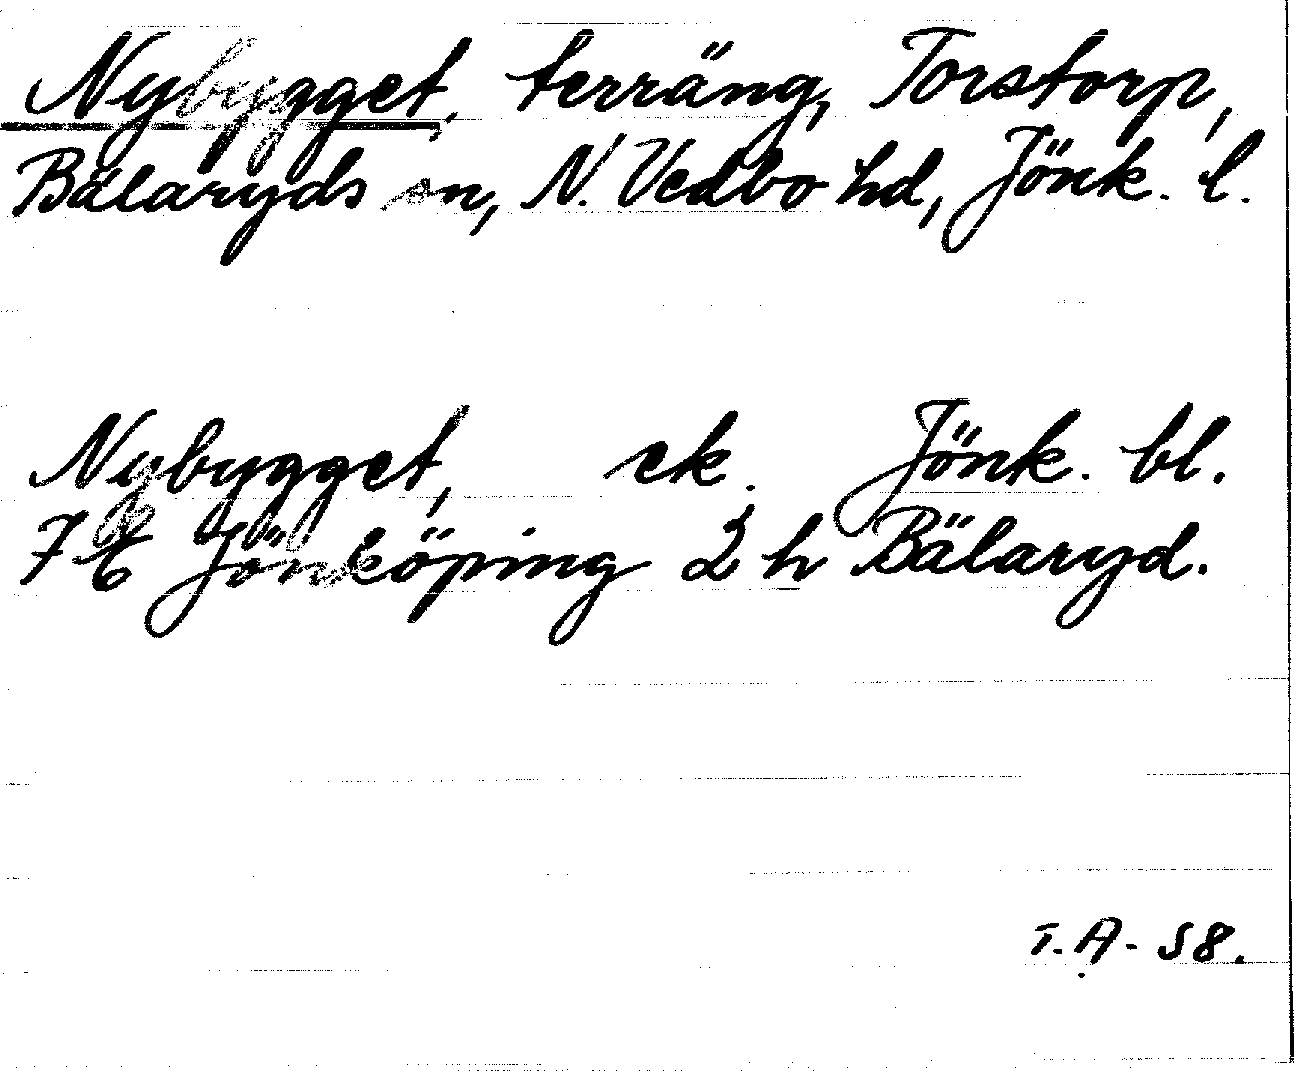 Nybygget, terräng, Torstorp,
Bälaryds sn, N. Vedbo hd, Jönk. l.
Nybygget, ek. Jönk. bl.
7 E Jönköping 2 h Bälaryd.
T. A - 58.